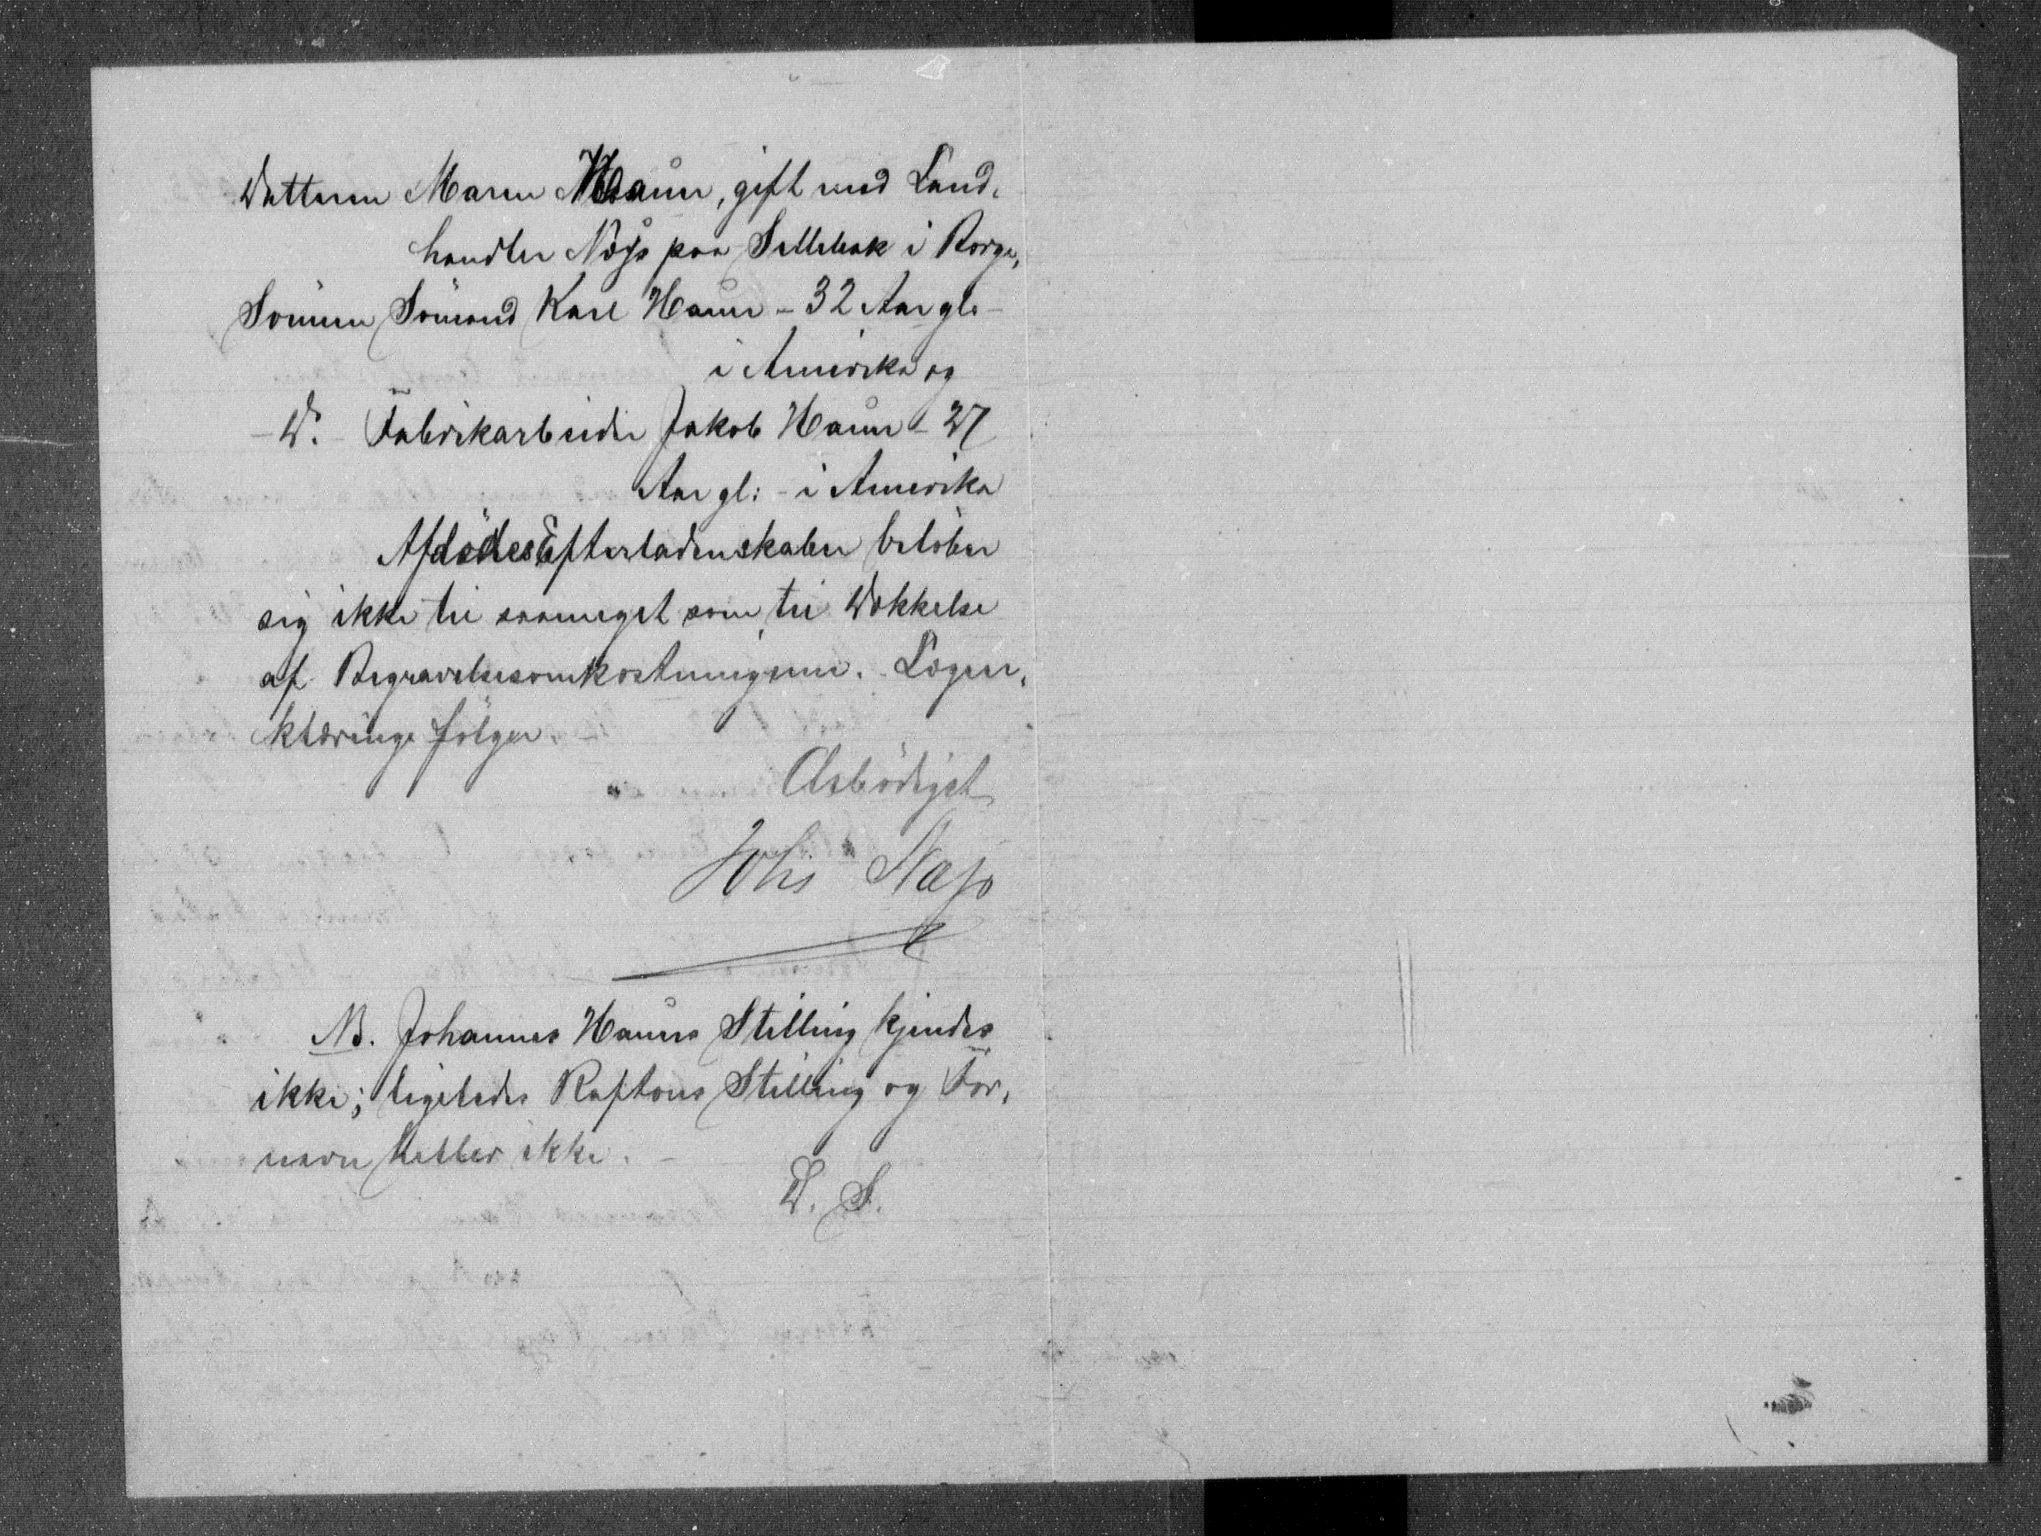 Datteren Maren Haaun, gift med Land-
handler Næss paa Sellebak i Borge,
Sönnen Sömand Karl Haun - 32 Aar gl: -
i Amerika og
- D. - Fabrikarbeider Jakob Haun - 27
Aar gl: - i Amerika
Afdödes Efterladenskaber belöber
sig ikke til saameget som til Dækkelse
af Begravelsesomkostningerne. - Lægeer-
klæringe fölger.
Ærbödigst
Johs Næss
NB. Johannes Hauns Stilling kjendes
ikke; ligeledes Raftons Stilling og For-
navn heller ikke. -
D. S.